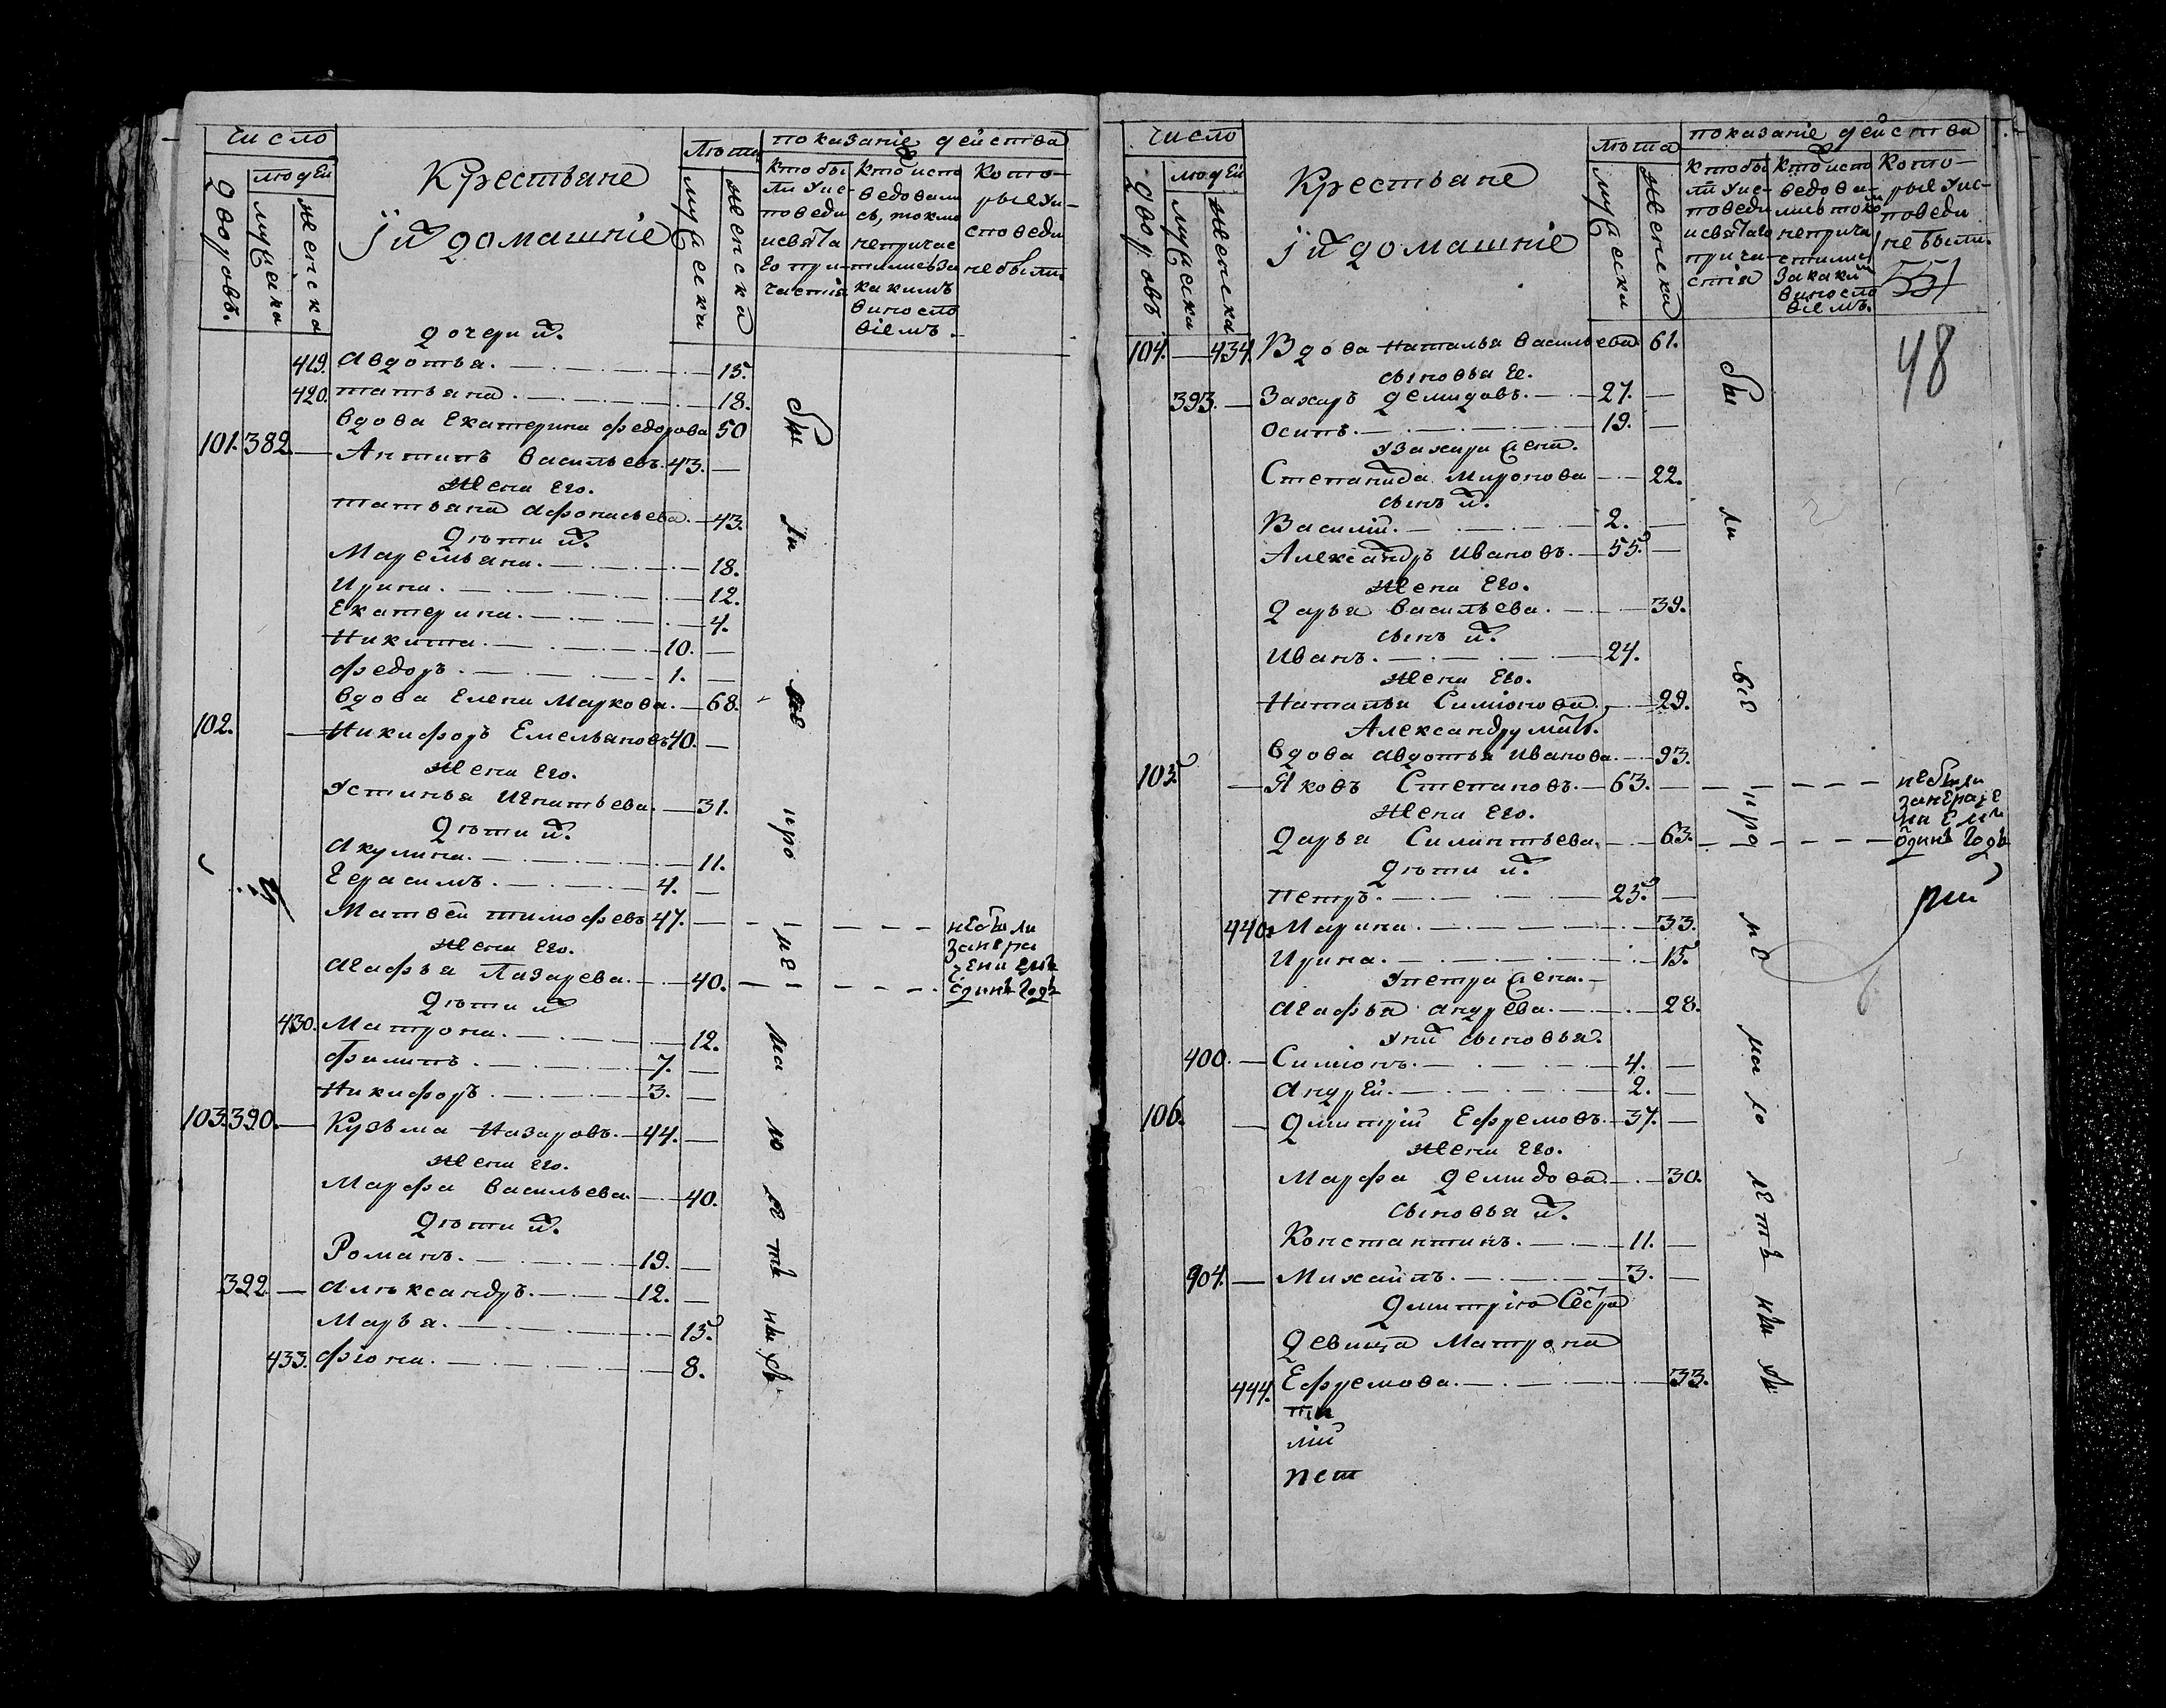 число
людей
дворовъ.
мужеска
женска
Крестьяне
ї их домашніе
лѣта
мужеска
женска
показаніе действа
кто бы
ли у ис-
поведи
и свята
го при-
частия
кто испо
ведовали
сь, токмо
непричас
тились за
какимъ
виносло
віемъ
кото-
рые у и-
споведи
не были.
дочери их.
419. Авдотья. 15.
420. татьяна. 18.
вдова Екатерина федорова 50
101. 382. — Антипъ васильевъ. 43. —
жена Его.
татьяна афонасьева. — 43.
Дѣти их.
Маремьяна. 18.
Ирина. 12.
Екатерина. 4.
Никита. 10. —
федоръ. 1. —
вдова Елена Маркова. — 68.
102. — Никифоръ Емельяновъ 40. —
жена Его.
Устинья Игнатьева. — 31.
Дѣти их.
Акулина. 11.
Герасимъ. 4. —
Матвей тимофевъ 47. —
жена Его.
Агафья Лазарева. 40.
Дѣти их
430. Матрона. 12.
Филипъ. 7. —
Никифоръ. 3. —
103. 390. — Кузьма Назаровъ. — 44. —
жена Его.
Марфа васильева. 40.
Дѣти их.
Романъ. 19. —
392 — Алѣксандръ. 12. —
Марья. 15.
433. Фіона. 8.
бы
ли
все
кро
ме
ма
ло
ле
тн
ны
хъ
небыли
занера
чениемъ
одинъ годъ
число
людей
дворовъ
мужеска
женска
Крестьяне
ї их домашніе
лѣта
мужеска
женска
показаніе действа
кто бы
ли у ис-
поведи
и святаго
прича-
стия
кто испо
ведова-
лись токмо
неприча
стились
за каким
виносло
віемъ.
кото-
рые у ис-
поведи
небыли.
551
48
104. — 434. Вдова Наталья васильева 61.
сыновья Ее.
393. — Захаръ демидовъ. 27. —
Осипъ. 19. —
У Захара жена.
Степанида Миронова 22.
сынъ их.
Василій. 2. —
Александръ Ивановъ. — 55. —
жена Его.
Дарья васильева. 39.
сынъ их.
Иванъ. 24.
жена Его.
Наталья Симіонова. 29.
Александру мать.
вдова Авдотья Иванова. 93.
105. — Яковъ Степановъ. — 63. —
жена Его.
Дарья Силинтьева. 63.
Дѣти их.
Петръ. 25. —
440. Марина. 33.
Ирина. 15.
У петра жена. —
Агафья андрева. 28.
У них сыновья.
400. — Симіонъ. 4. —
Андрей. 2. —
106. — Дмитрій Ефремовъ. — 37. —
жена Его.
Марфа демидова. 30.
сыновья их.
Константинъ. 11. —
404. — Михаилъ. 3. —
Дмитрію Сестра
Девица Матрона
444. Ефремова. 33.
лій
пет
бы
ли
все
кро
ме
ма
ло
ле
тн
ны
хъ
небыли
одинъ годъ
рій